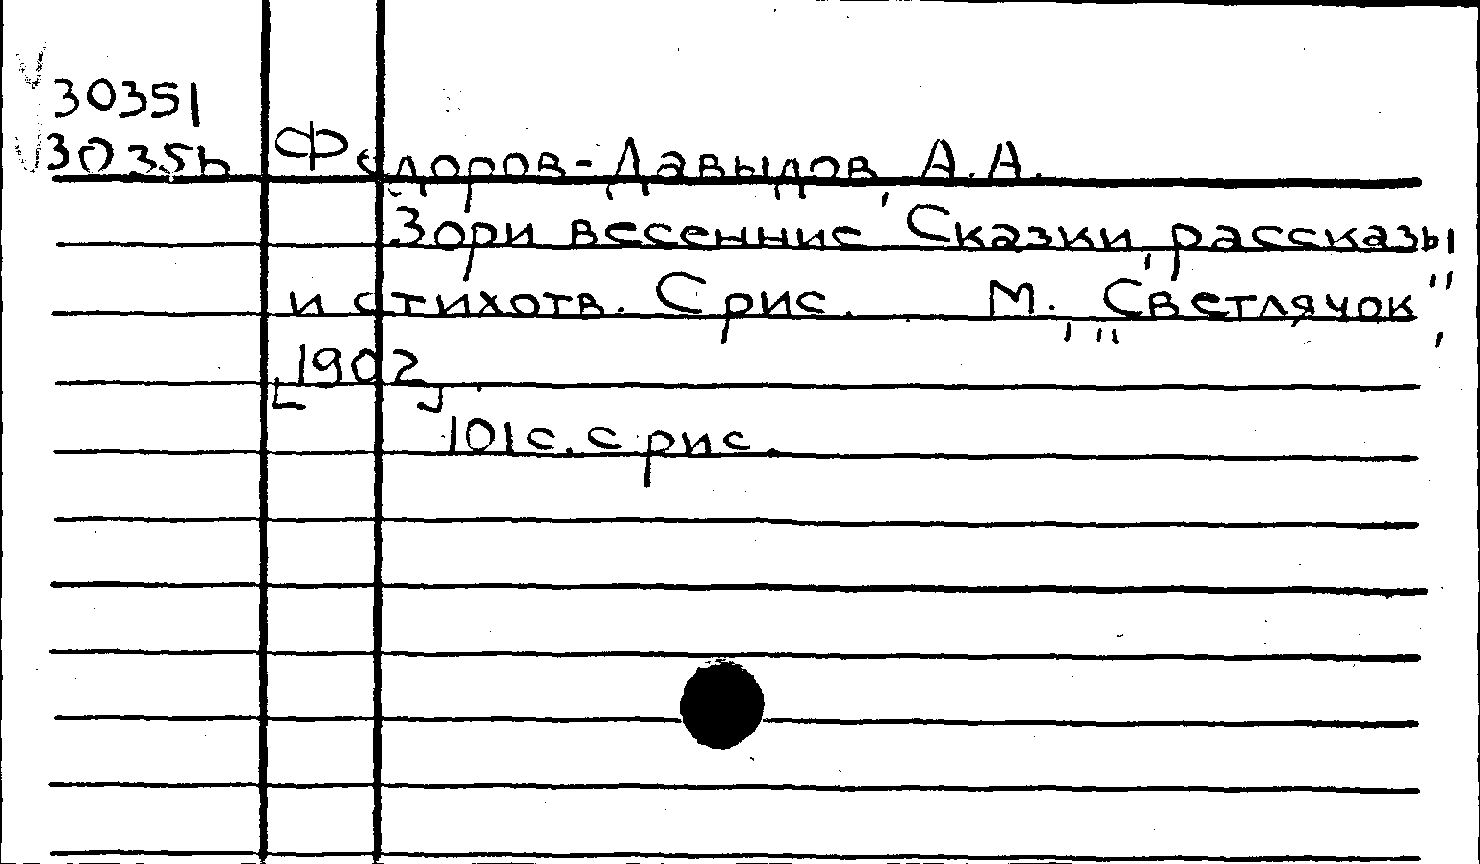 30351
3035ь Федоров-Давыдов, А.А.
Зори весенние Сказки, рассказы
и стихотв. С рис. М., "Светлячок",
[1902]
101с. с рис.